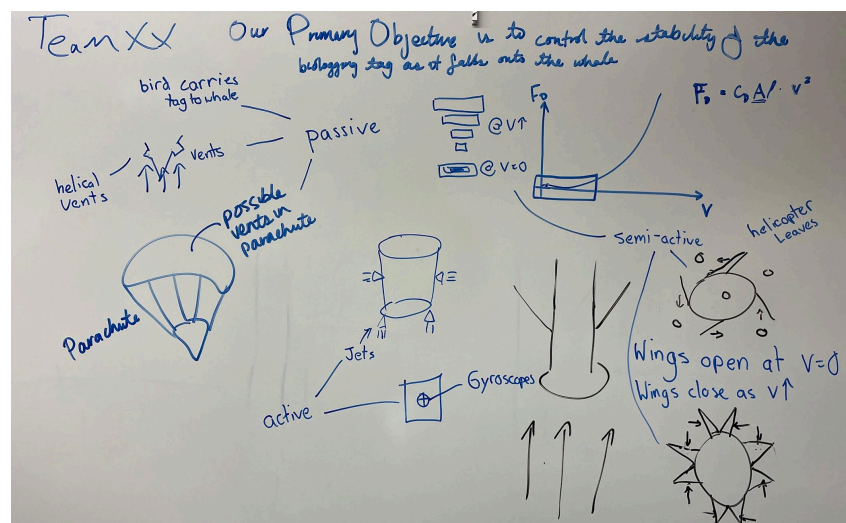 Team XX
Our Primary Objective is to control the stability of the
biologging tag as it falls onto the whale
bird carries
tag to whale
passive
vents
helical
vents
possible
vents in
parachute
Parachute
@ V↑
@ V=0
F_D
V
F_D = C_D A ρ · V²
semi-active
helicopter
leaves
Wings open at V=0
Wings close as V↑
Jets
active
Gyroscopes